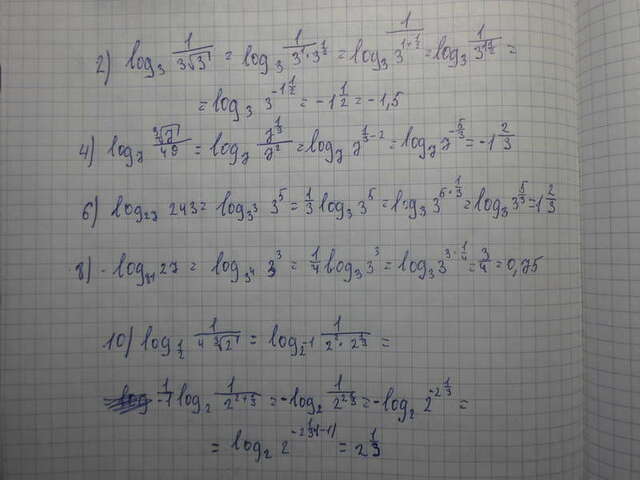 2) log₃ 1/(3√3) = log₃ 1/(3¹·3^(1/2)) = log₃ 1/3^(1+1/2) = log₃ 1/3^(1 1/2) =
= log₃ 3^(-1 1/2) = -1 1/2 = -1,5
4) log₇ ∛7/49 = log₇ 7^(1/3)/7² = log₇ 7^(1/3-2) = log₇ 7^(-5/3) = -1 2/3
6) log₂₇ 243 = log₃³ 3⁵ = 1/3 log₃ 3⁵ = log₃ 3^(5·1/3) = log₃ 3^(5/3) = 1 2/3
8) log₈₁ 27 = log₃⁴ 3³ = 1/4 log₃ 3³ = log₃ 3^(3·1/4) = 3/4 = 0,75
10) log_(1/2) 1/(4∛2) = log₂₋₁ 1/(2²·2^(1/3)) =
1/-1 log₂ 1/2^(2+1/3) = -log₂ 1/2^(2 1/3) = -log₂ 2^(-2 1/3) =
= log₂ 2^(-2 1/3·(-1)) = 2 1/3